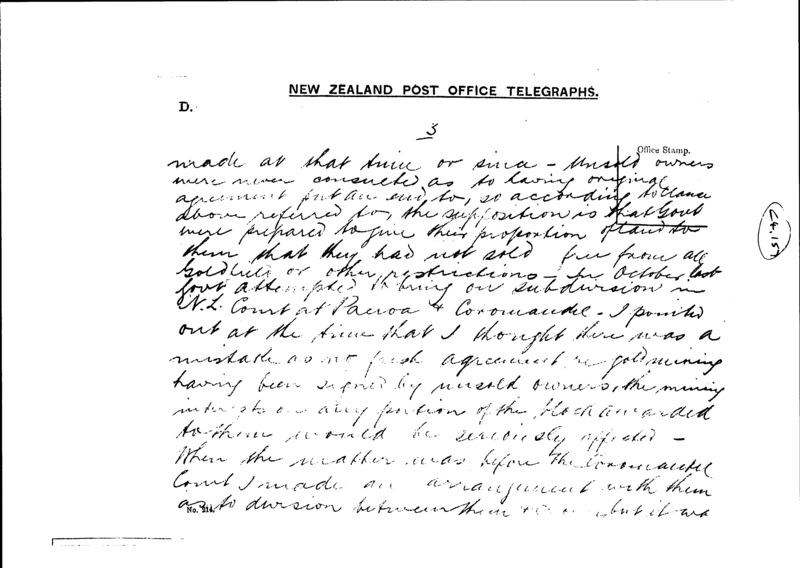 NEW ZEALAND POST OFFICE TELEGRAPHS.
D.
3
Office Stamp.
made at that time or since - Unsold owners
were never consulted as to having original
agreement put an end to, so according to clause
above referred to, the supposition is that Govt
were prepared to give their proportion of land to
them that they had not sold free from all
Goldfield or other restrictions - In October last
Govt attempted to bring on subdivision in
N.L. Court at Paeroa & Coromandel - I pointed
out at the time that I thought there was a
mistake as no fresh agreement re gold mining
having been signed by unsold owners, the mining
interests on any portion of the block awarded
to them would be seriously affected -
When the matter was before the Coromandel
Court I made an arrangement with them
as to division between them but it was
No.